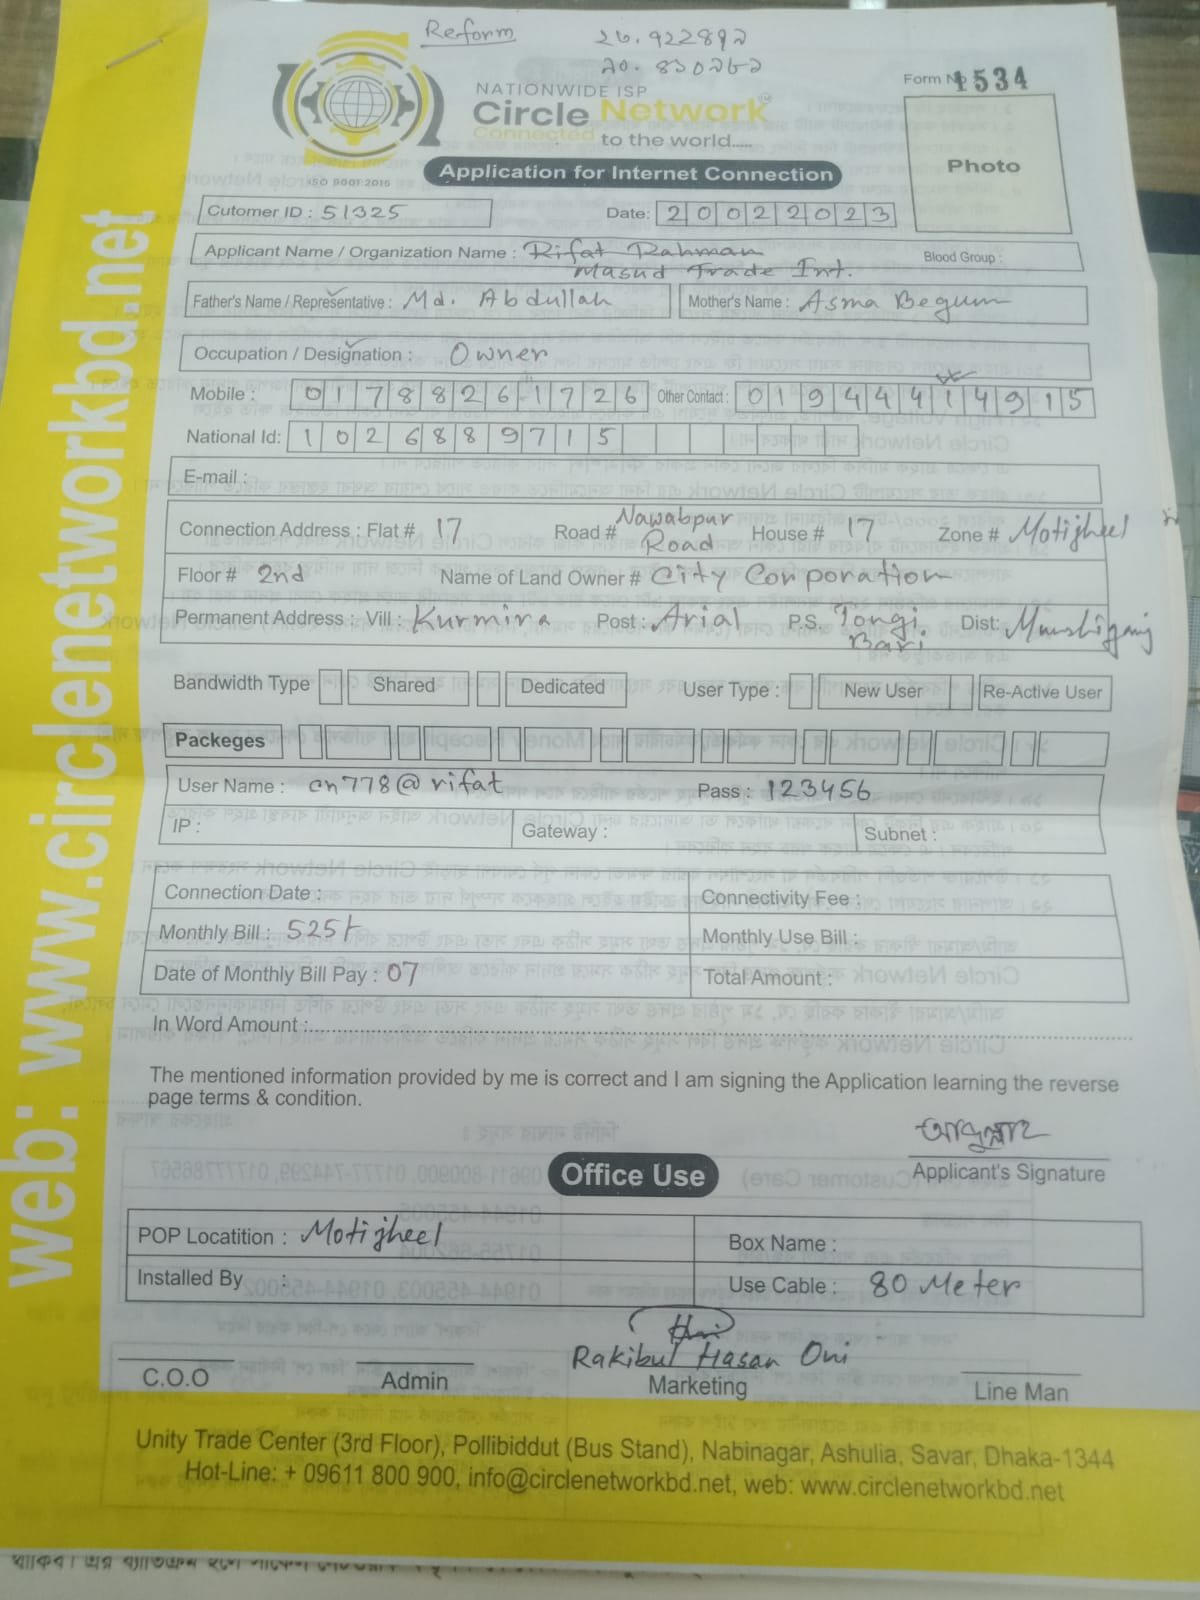 Reform
২৩.৭২২৪৭২
৯০.৪১০২৮৯
Form No 1534
NATIONWIDE ISP
Circle Network
Connected to the world.....
ISO 9001 2015
Application for Internet Connection
Photo
Cutomer ID : 51325 Date: 20022023
Applicant Name / Organization Name : Rifat Rahman Blood Group :
Masud Trade Int.
Father's Name / Representative : Md. Abdullah Mother's Name : Asma Begum
Occupation / Designation : Owner
Mobile : 01788261726 Other Contact : 01944414915
National Id: 1026889715
E-mail :
Connection Address : Flat # 17 Road # Nawabpur Road House # 17 Zone # Motijheel
Floor # 2nd Name of Land Owner # City Corporation
Permanent Address : Vill : Kurmira Post : Arial P.S. Tongi Bari Dist: Munshiganj
Bandwidth Type Shared Dedicated User Type : New User Re-Active User
Packeges
User Name : cn778@rifat Pass : 123456
IP : Gateway : Subnet :
Connection Date : Connectivity Fee :
Monthly Bill : 525t Monthly Use Bill :
Date of Monthly Bill Pay : 07 Total Amount :
In Word Amount :
The mentioned information provided by me is correct and I am signing the Application learning the reverse
page terms & condition.
আব্দুল্লাহ
Applicant's Signature
Office Use
POP Locatition : Motijheel Box Name :
Installed By : Use Cable : 80 Meter
Rakibul Hasan Oni
C.O.O Admin Marketing Line Man
Unity Trade Center (3rd Floor), Pollibiddut (Bus Stand), Nabinagar, Ashulia, Savar, Dhaka-1344
Hot-Line: + 09611 800 900, info@circlenetworkbd.net, web: www.circlenetworkbd.net
web: www.circlenetworkbd.net